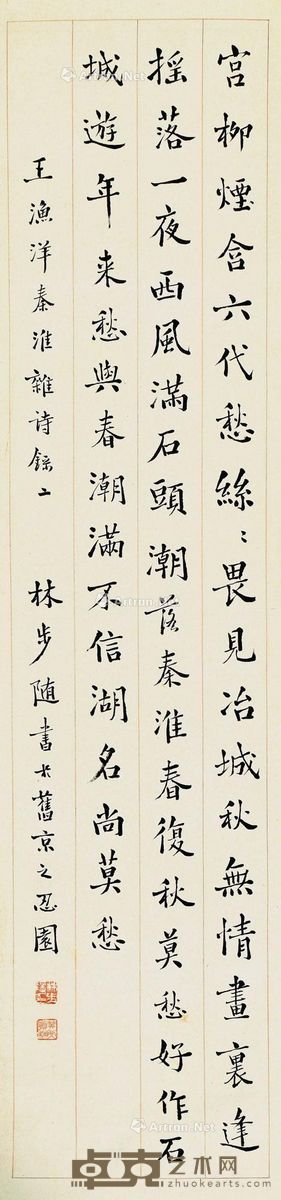 宮柳煙含六代愁絲〻畏見冶城秋無情畫裏逢
搖落一夜西風滿石頭潮落秦淮春復秋莫愁好作石
城遊年来愁與春潮滿不信湖名尚莫愁
王漁洋秦淮雜詩錄二
林步隨書於舊京之忍園
Artron.Net
卓克艺术网
zhuokearts.com